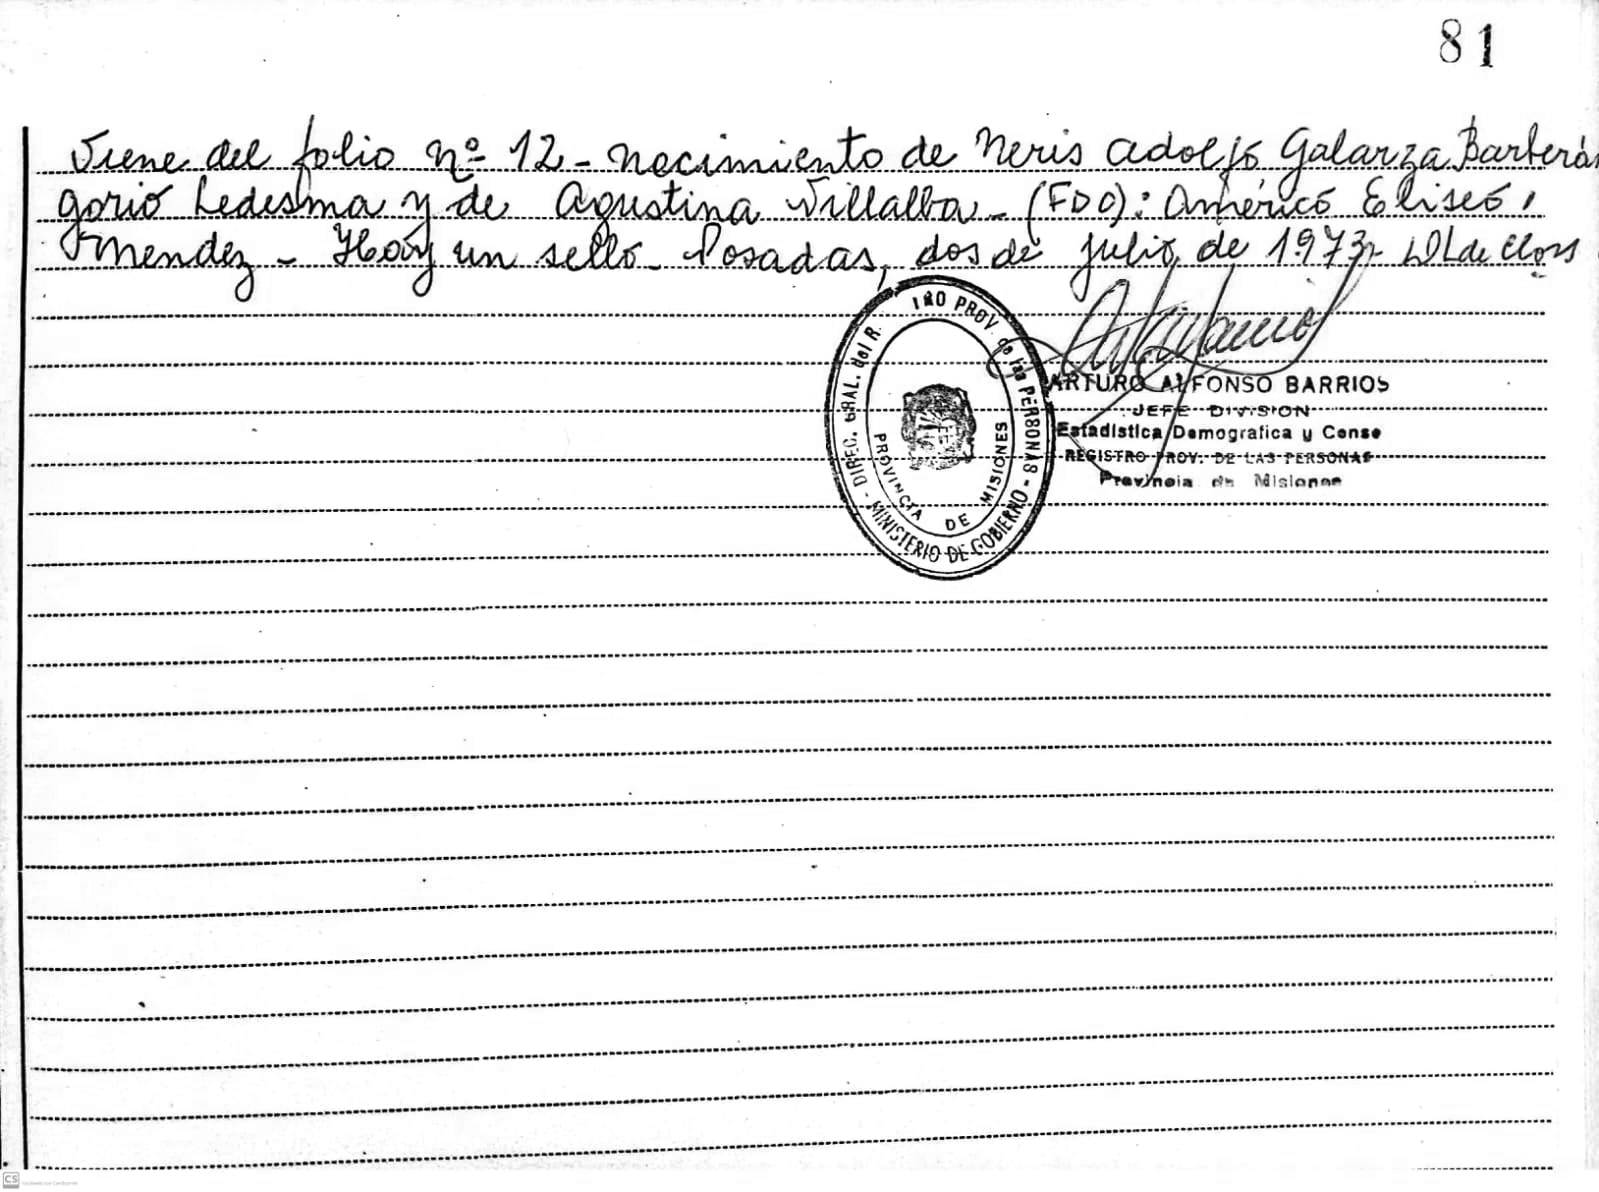 81
Viene del folio nº 12 - nacimiento de Neris Adolfo Galarza Barberán
gorio Ledesma y de Agustina Villalba - (FDO): Américo Eliseo
Mendez - Hay un sello - Posadas, dos de julio, de 1.973 -
DIREC. GRAL. del R. PROV. de las PERSONAS
MINISTERIO DE GOBIERNO
PROVINCIA DE MISIONES
ARTURO ALFONSO BARRIOS
JEFE DIVISION
Estadistica Demografica y Censo
REGISTRO PROV. DE LAS PERSONAS
Provincia de Misiones
CS